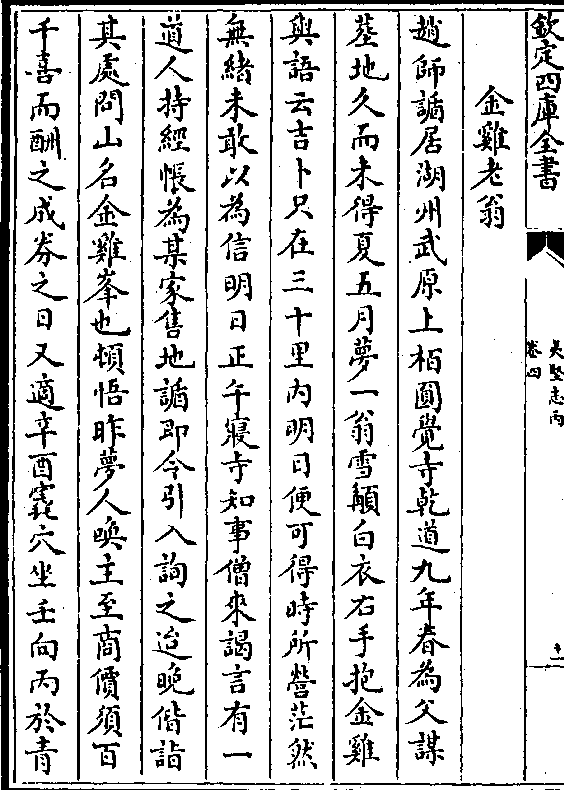 欽定四庫全書
夷堅志丙
卷四
十一
金雞老翁
趙師譎居湖州武原上栢圓覺寺乾道九年春為父謀
塟地久而未得夏五月夢一翁雪顱白衣右手抱金雞
與語云吉卜只在三十里内明日便可得時所營茫然
無緒未敢以為信明日正午寢寺知事僧來謁言有一
道人持經帳為某家售地譎即令引入詢之迨晚偕詣
其處問山名金雞峯也頓悟昨夢人喚主至商價須百
千喜而酬之成劵之日又適辛酉竁穴坐壬向丙於青